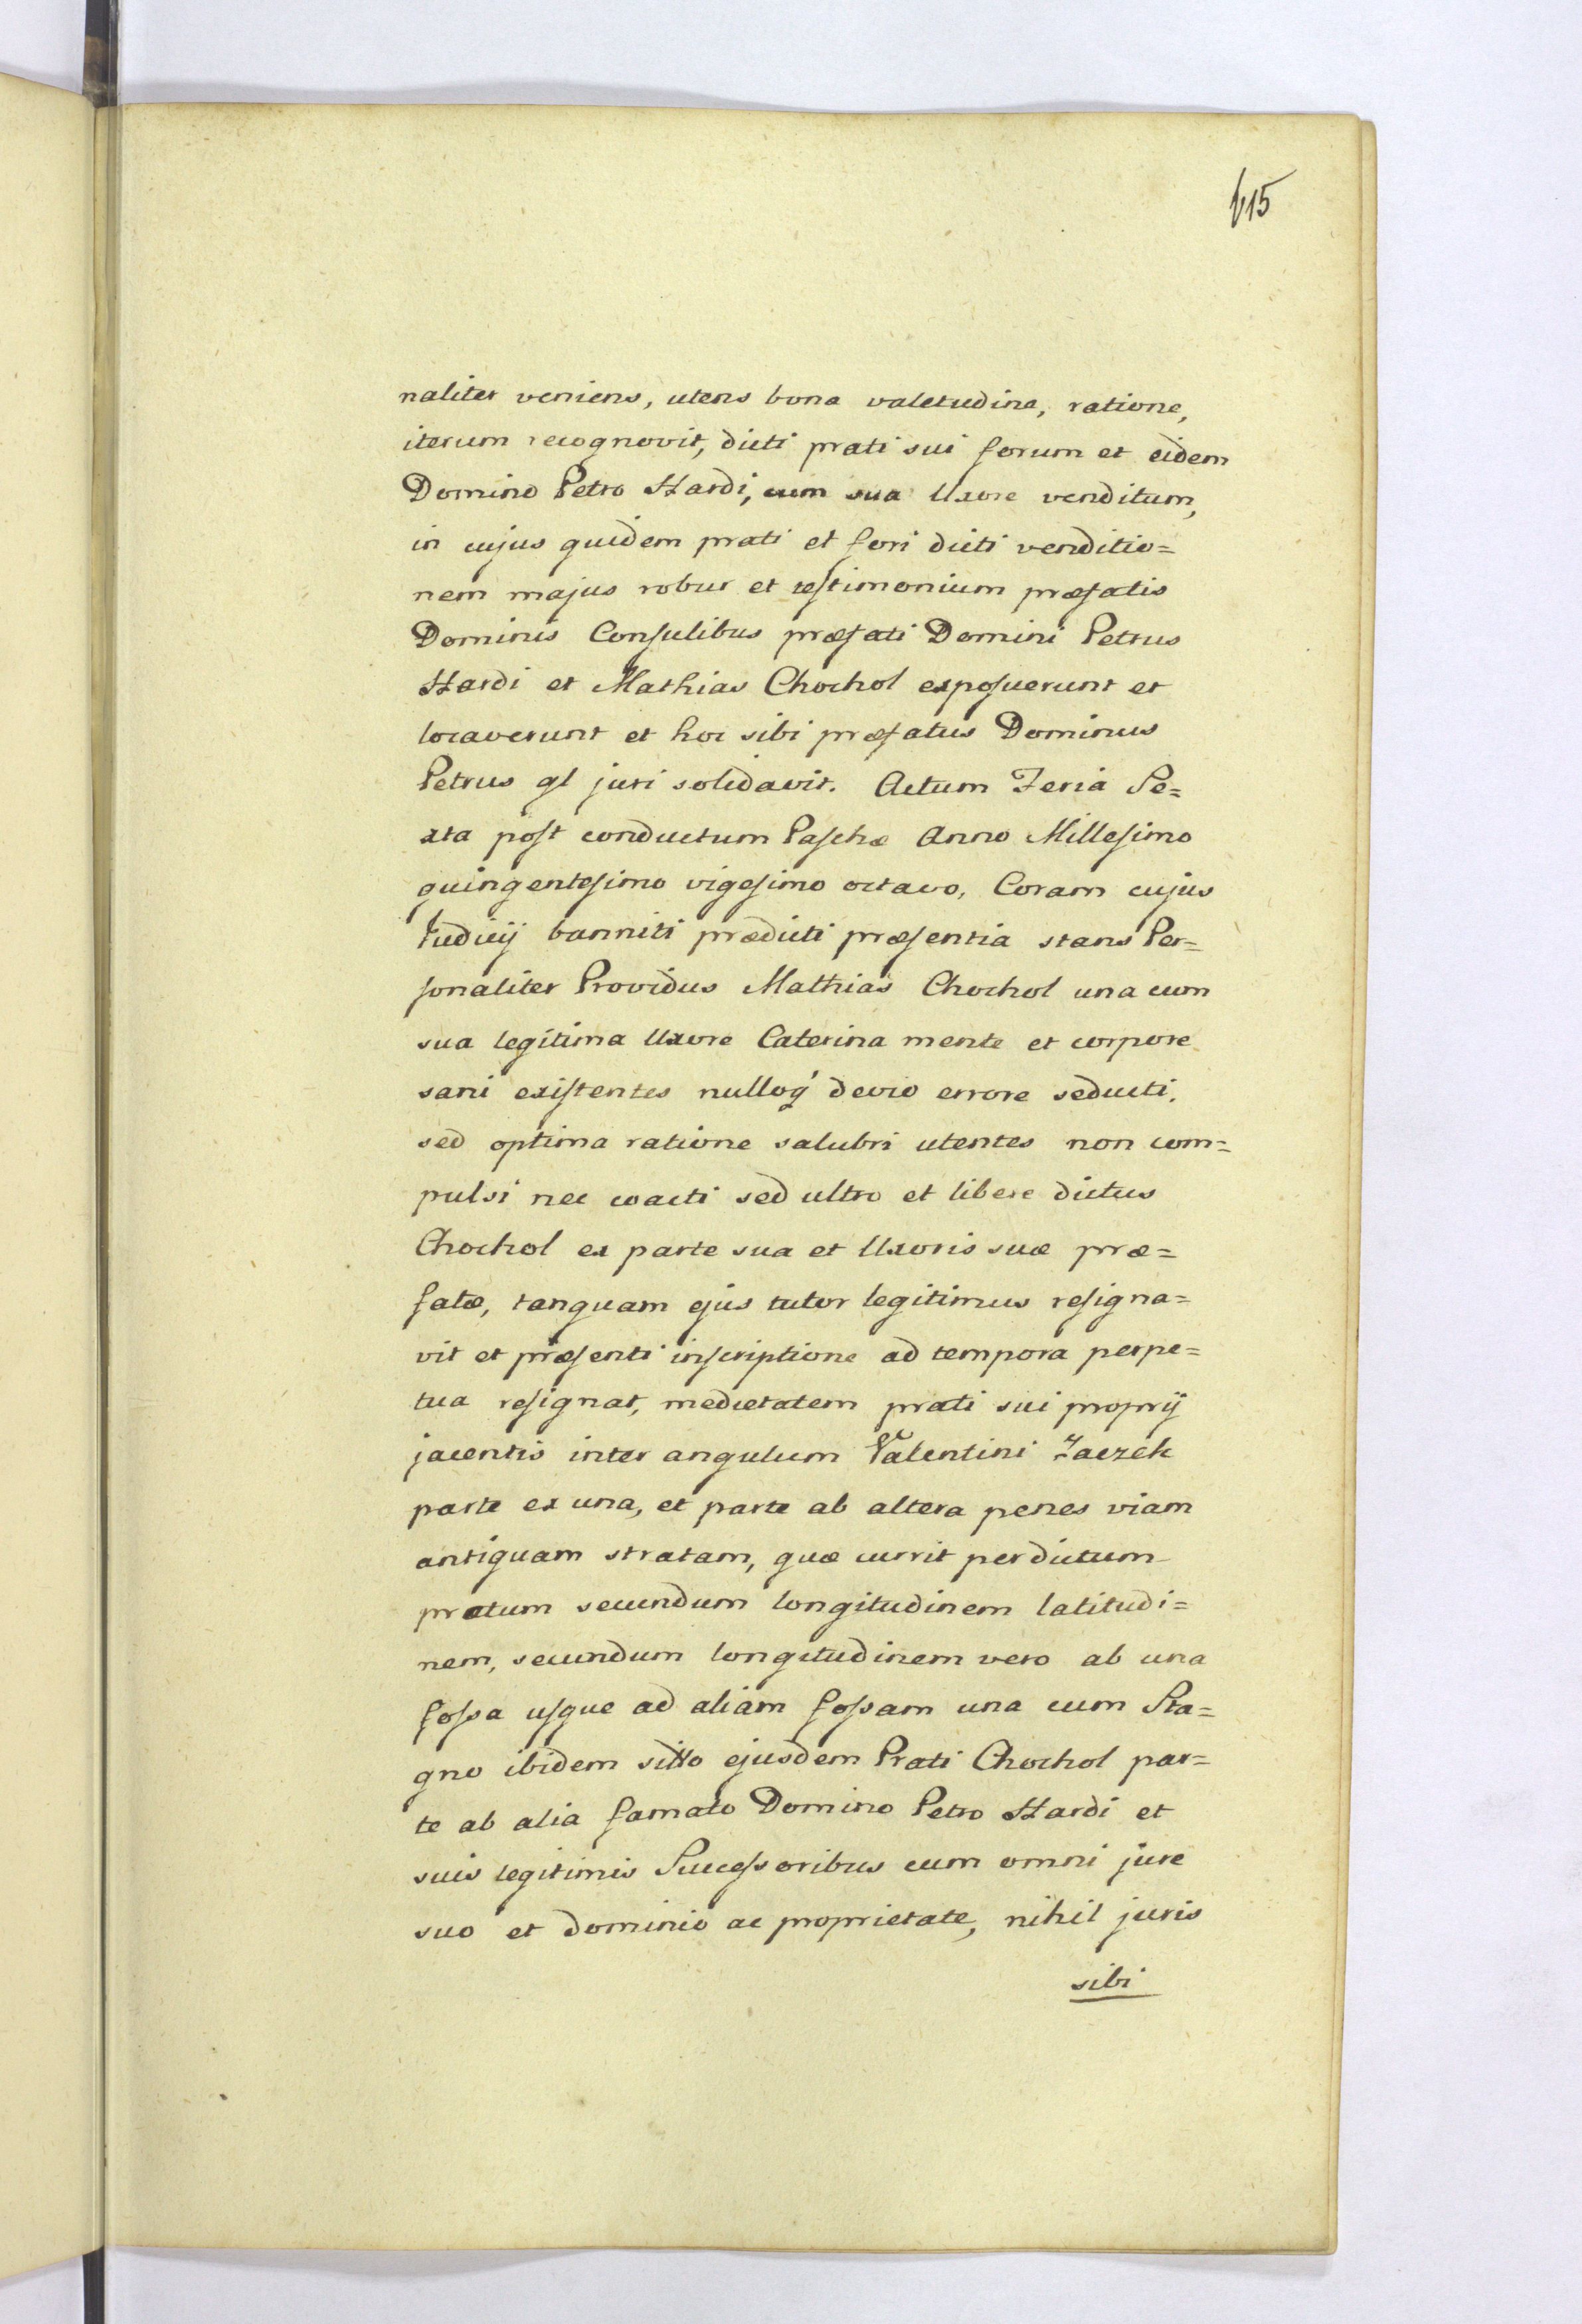 615
naliter veniens, utens bona valetudine, ratione,
iterum recognovit, dicti prati sui forum et eidem
Domino Petro Hardi, cum sua Uxore venditum,
in cujus quidem prati et fori dicti venditio=
nem majus robur et teſtimonium præfatis
Dominis Conſulibus præfati Domini Petrus
Hardi et Mathias Chochol expoſuerunt et
locaverunt et hoc sibi præfatus Dominus
Petrus gl juri solidavit. Actum Feria Se=
xta poſt conductum Paſchæ Anno Milleſimo
quingenteſimo vigeſimo octavo, Coram cujus
Iudicij banniti prædicti præſentia stans Per=
ſonaliter Providus Mathias Chochol una cum
sua legitima Uxore Caterina mente et corpore
sani exiſtentes nulloq́ devio errore seducti,
sed optima ratione salubri utentes non com=
pulsi nec coacti sed ultro et libere dictus
Chochol ex parte sua et Uxoris suæ præ=
fatæ, tanquam ejus tutor legitimus reſigna=
vit et præſenti inſcriptione ad tempora perpe=
tua reſignat, medietatem prati sui proprij
jacentis inter angulum Valentini Zaczek
parte ex una, et parte ab altera penes viam
antiquam stratam, quæ currit per dictum
pratum secundum longitudinem latitudi=
nem, secundum longitudinem vero ab una
foſsa uſque ad aliam foſsam una cum Sta=
gno ibidem sitto ejusdem Prati Chochol par=
te ab alia famato Domino Petro Hardi et
suis legitimis Succeſsoribus cum omni jure
suo et dominio ac proprietate, nihil juris
sibi